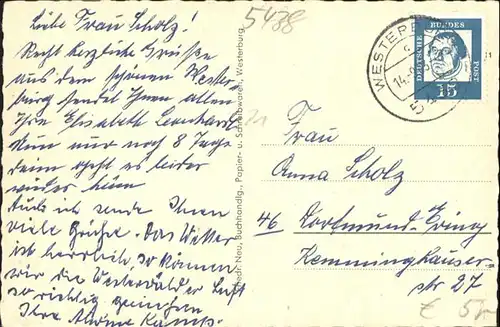 Liebe Frau Scholz!
Recht herzliche Grüße
aus dem schönen Wester-
burg sendet Ihnen allen
Ihre Elisabeth Leonhard
Nun nur noch 8 Tage
dann geht es leider
wieder heim
Auch ich sende Ihnen
viele Grüße. Das Wetter
ist herrlich, so können
wir die Westerwälder Luft
so richtig genießen
Ihre Kamp.
5438
Friedr. Neu, Buchhandlg., Papier- u. Schreibwaren, Westerburg
WESTERBURG
DEUTSCHE BUNDESPOST
15
Frau
Anna Scholz
46 Dortmund-Eving
Kemminghauser-
str 27
€ 5,-